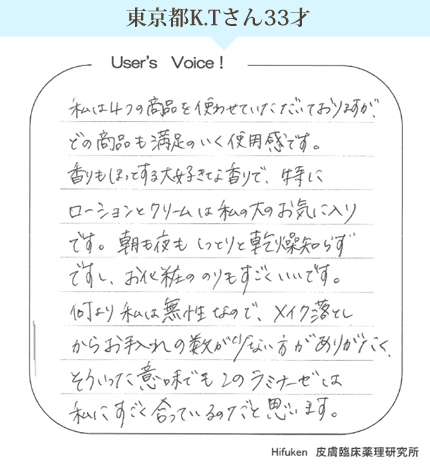 東京都K.Tさん33才
User's Voice!
私は4つの商品を使わせていただいておりますが、
どの商品も満足のいく使用感です。
香りもほっとする大好きな香りで、特に
ローションとクリームは私の大のお気に入り
です。朝も夜もしっとりと乾燥知らず
ですし、お化粧ののりもすごくいいです。
何より私は無性なので、メイク落とし
からお手入れの数が少ない方がありがたく、
そういった意味でもこのラミナーゼは
私にすごく合っているのだと思います。
Hifuken 皮膚臨床薬理研究所